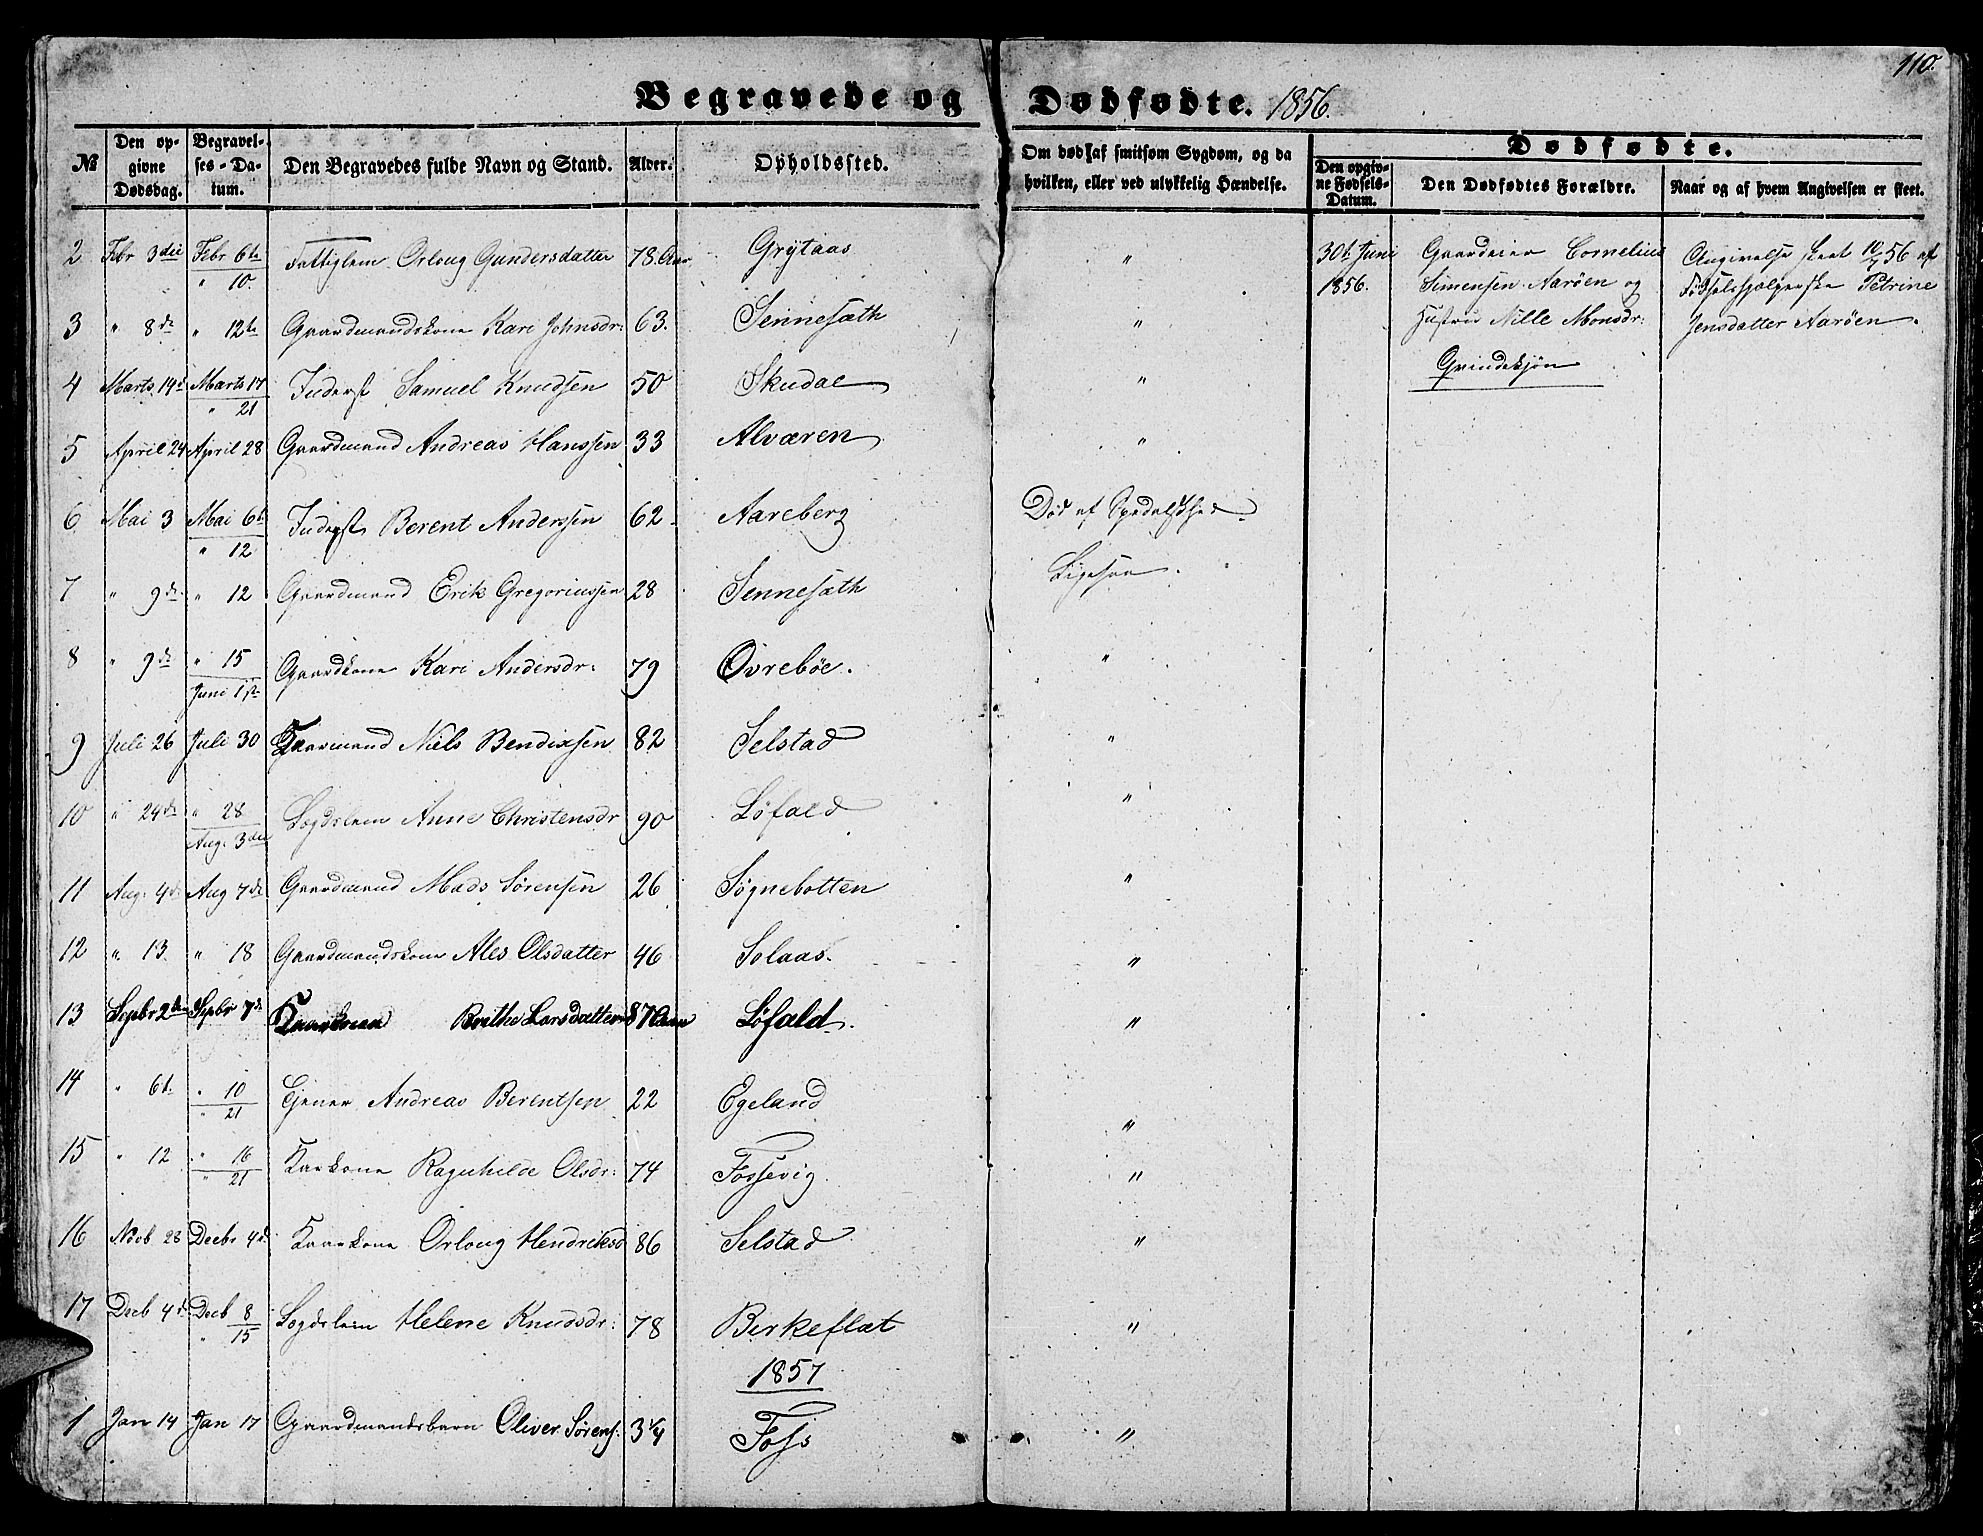 110.
Begravede og Dødfødte. 1856.
№ Den opgivne Dødsdag. Begravelses-Datum. Den Begravedes fulde Navn og Stand. Alder. Opholdssted. Om død af smitsom Sygdom, og da hvilken, eller ved ulykkelig Hændelse. Dødfødte. Den opgivne Fødsels-Datum. Den Dødfødtes Forældre. Naar og af hvem Angivelsen er skeet.
2 Febr 3die Febr 6te " 10. Fattiglem Orloug Gundersdatter 78. Aar Grytaas "
3 " 8de " 12te Gaardmandskone Kari Johnsdr: 63. Sennesæth "
4 Marts 14d Marts 17 " 21 Inderst Samuel Knudsen 50 Skudal "
5 April 24 April 28 Gaardmand Andreas Hanssen 33 Alværen "
6 Mai 3 Mai 6te " 12 Inderst Berent Anderssen 62 Aareberg Død af Spedalskhed
7 " 9de " 12 Gaardmand Erik Gregoriussen 28 Sennesæth Ligesaa.
8 " 9de " 15 Juni 1ste Gaardkone Kari Andersdr: 79 Øvrebøe. "
9 Juli 26 Juli 30 Kaarmand Niels Bendixsen 82 Selstad "
10 " 24de " 28 Aug. 3die Lægdslem Anne Christensdr 90 Løfald "
11 Aug. 4de Aug 7de Gaardmand Mads Sørensen 26 Søgnebotten "
12 " 13 " 18 Gaardmandskone Ales Olsdatter 46 Solaas. "
13 Sepbr 2den Sepbr 7de Brithe Larsdatter 87 Aar Løfald. "
14 " 6t. " 10 " 21 Andreas Berentsen 22 Egeland "
15 " 12 " 16 " 21 Karkone Ragnhilde Olsdr: 74 Fossevig "
16 Novb 28 Decbr 4de Kaarkone Orloug Hendriksd 86 Selstad "
17 Decb 4de Decb 8 " 15 Lægdslem Helene Knudsdr: 78 Birkeflat "
1857
1 Jan 14 Jan 17 Gaardmandsbarn Oliver Sørens: 3 1/4 Foss "
30t Juni 1856. Gaardeier Cornelius Simensen Aarøen og Hustrue Nille Monsdr: Grindekjøn
Angivelse skeet 10/7 56 af Fødselshjælperske Petrine Jensdatter Aarøen.